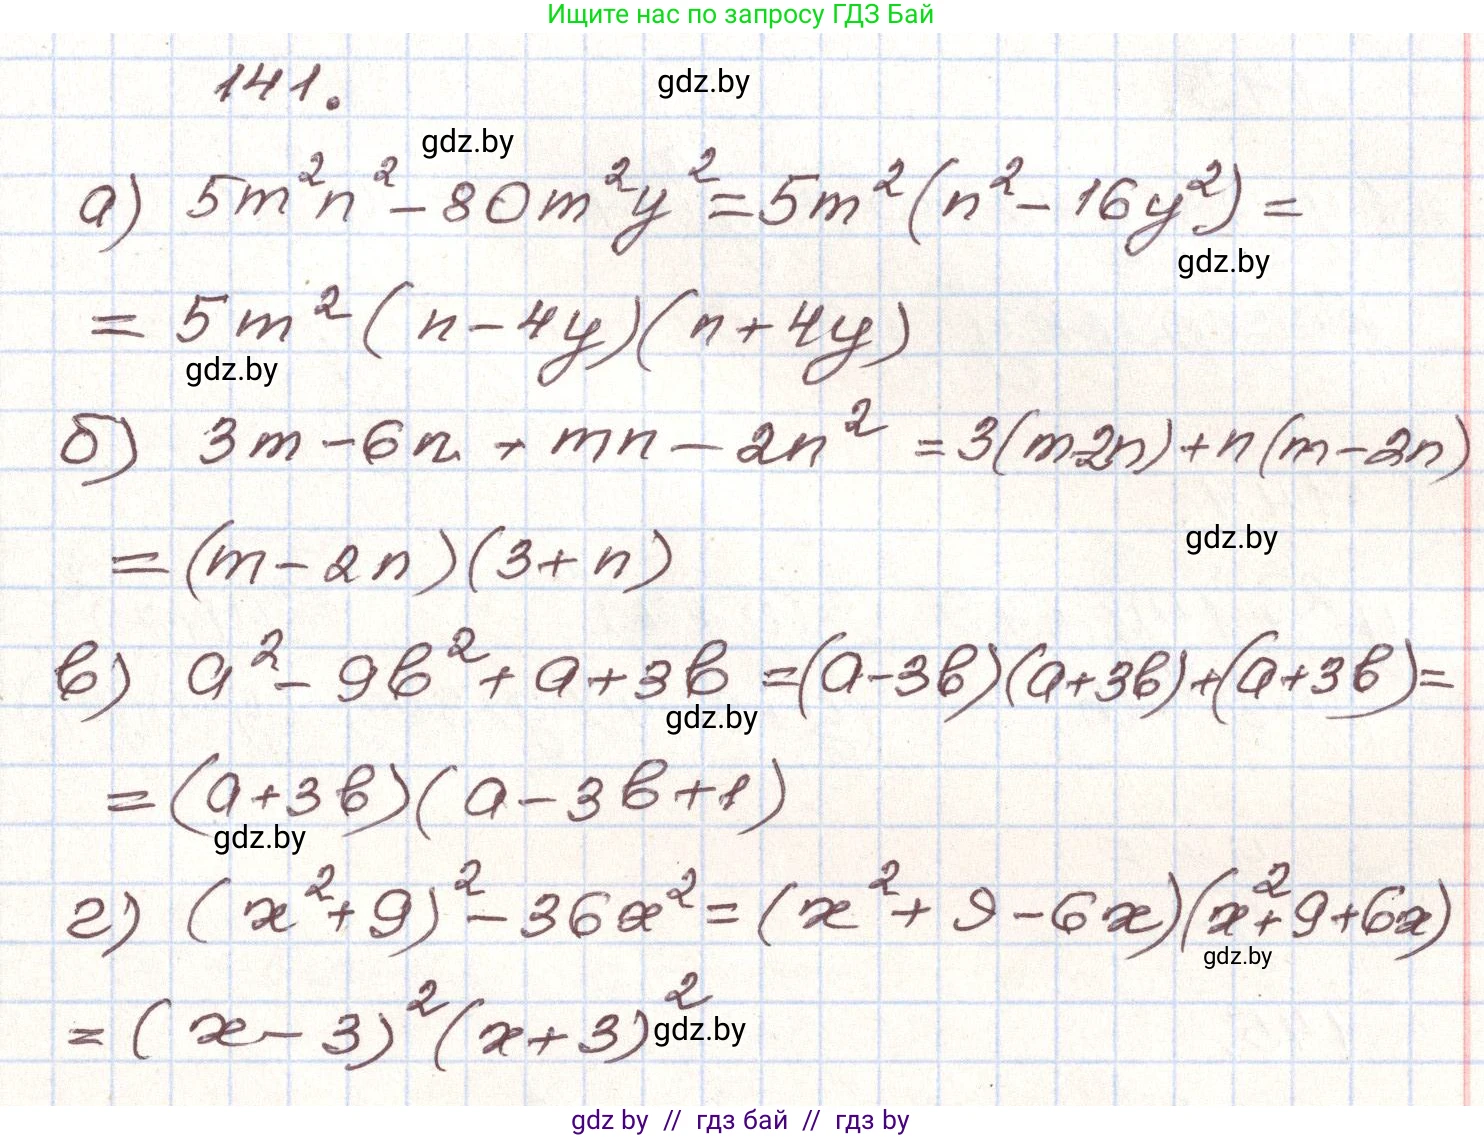 Ищите нас по запросу ГДЗ Бай
141.
gdz.by
gdz.by
а) 5m²n² - 80m²y² = 5m²(n² - 16y²) =
gdz.by
= 5m²(n - 4y)(n + 4y)
gdz.by
б) 3m - 6n + mn - 2n² = 3(m-2n) + n(m - 2n)
gdz.by
= (m - 2n)(3 + n)
в) a² - 9b² + a + 3b = (a - 3b)(a + 3b) + (a + 3b) =
gdz.by
= (a + 3b)(a - 3b + 1)
gdz.by
г) (x² + 9)² - 36x² = (x² + 9 - 6x)(x² + 9 + 6x)
gdz.by
= (x - 3)²(x + 3)²
gdz.by
gdz by // гдз бай // гдз by